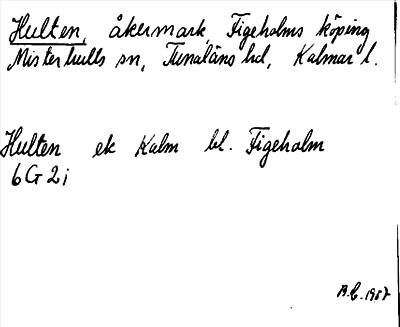 Hulten, åkermark, Figeholms köping
Misterhults sn, Tunaläns hd, Kalmar l.
Hulten ek Kalm bl. Figeholm
6G 2i
B.C. 1957